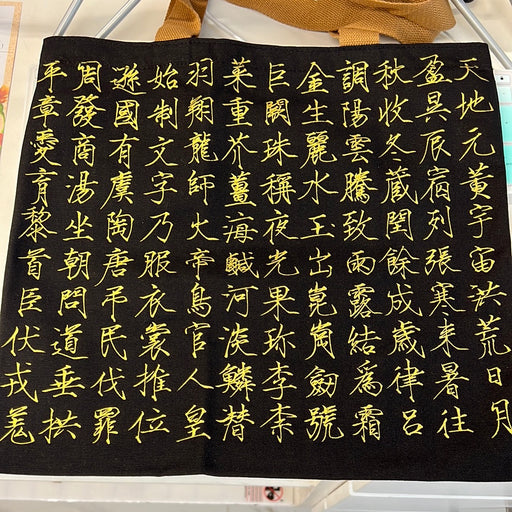 天地元黃宇宙洪荒日月
盈昃辰宿列張寒來暑往
秋收冬藏閏餘成歲律呂
調陽雲騰致雨露結爲霜
金生麗水玉出崑崗劒號
巨闕珠稱夜光果珍李柰
菜重芥薑海鹹河淡鱗潛
羽翔龍師火帝鳥官人皇
始制文字乃服衣裳推位
遜國有虞陶唐弔民伐罪
周發商湯坐朝問道垂拱
平章愛育黎首臣伏戎羌